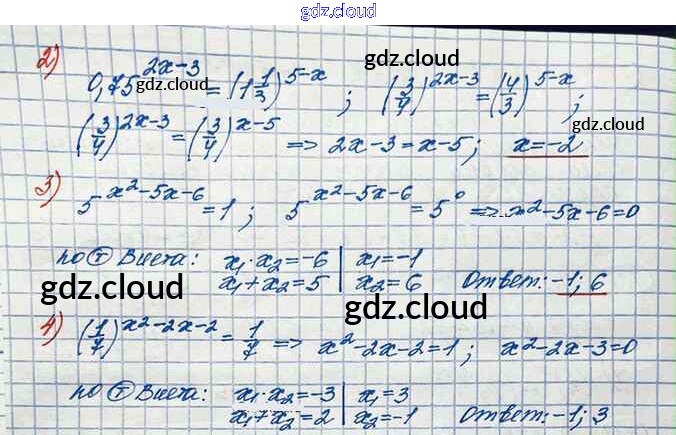 gdz.cloud
2) 0,75^(2x-3) = (1 1/3)^(5-x) ; (3/4)^(2x-3) = (4/3)^(5-x) ;
gdz.cloud
gdz.cloud
gdz.cloud
(3/4)^(2x-3) = (3/4)^(x-5) => 2x-3=x-5; x=-2
3) 5^(x²-5x-6) = 1 ; 5^(x²-5x-6) = 5^0 => x²-5x-6=0
по Т Виета: x₁·x₂=-6 | x₁=-1
x₁+x₂=5 | x₂=6 Ответ: -1; 6
gdz.cloud
gdz.cloud
gdz.cloud
4) (1/7)^(x²-2x-2) = 1/7 => x²-2x-2=1; x²-2x-3=0
по Т Виета: x₁·x₂=-3 | x₁=3
x₁+x₂=2 | x₂=-1 Ответ: -1; 3